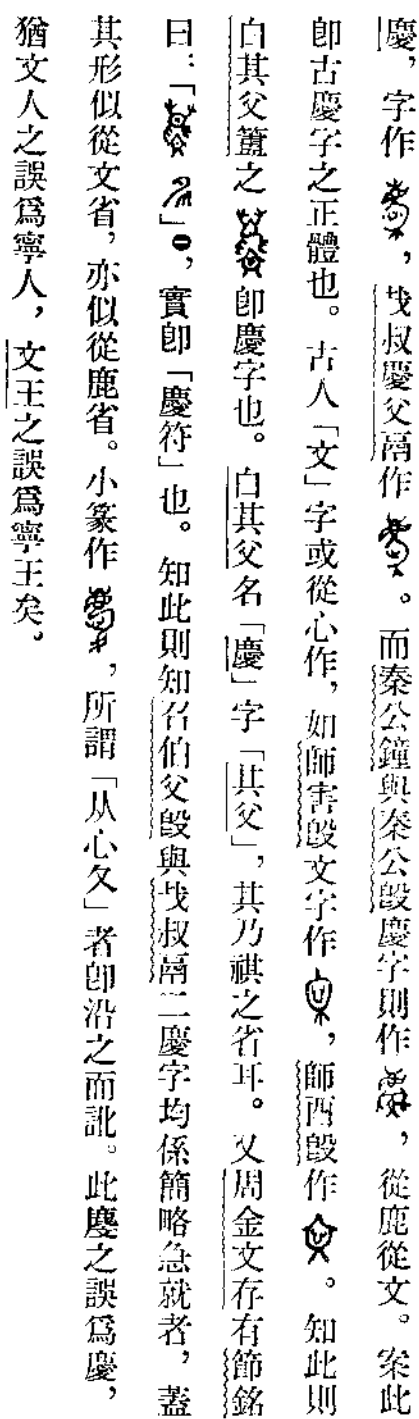 慶，字作，㚤叔慶父鬲作。而秦公鐘與秦公𣪘慶字則作，從鹿從文。案此
卽古慶字之正體也。古人「文」字或從心作，如師害𣪘文字作，師酉𣪘作。知此則
白其父簠之卽慶字也。白其父名「慶」字「其父」，其乃祺之省耳。又周金文存有節銘
曰：「」，實卽「慶符」也。知此則知召伯父𣪘與叔鬲二慶字均係簡略急就者，蓋
其形似從文省，亦似從鹿省。小篆作，所謂「从心夂」者卽沿之而訛。此之誤爲慶，
猶文人之誤爲寧人，文王之誤爲寧王矣。